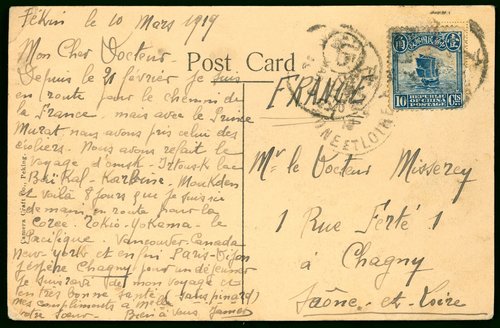 Pékin le 10 Mars 1919
Mon Cher Docteur
Depuis le 21 février je suis
en route pour le chemin de
la France, mais avec le Prince
Murat nous avons pris celui des
écoliers. Nous avons refait le
voyage d'omsk - Irtousk lac
Baïkal - Karbine - Moukden
et voilà 8 jours que je suis
demain en route pour la
Corée. Tokio - Yokama - le
Pacifique. Vancouver - Canada
New-york et enfin Paris - Dijon
j'espère Chagny pour un déjeuner
de mon voyage et
en très bonne santé
mes compliments à Mlle
votre Sœur - Bien à vous
Camera Craft Co., Peking.
Post Card
FRANCE
10 REPUBLIC OF CHINA POSTAGE Cts
NE ET LOIRE
Mr le Docteur Misserey
1 Rue Ferté 1
à
Chagny
Saône-et-Loire